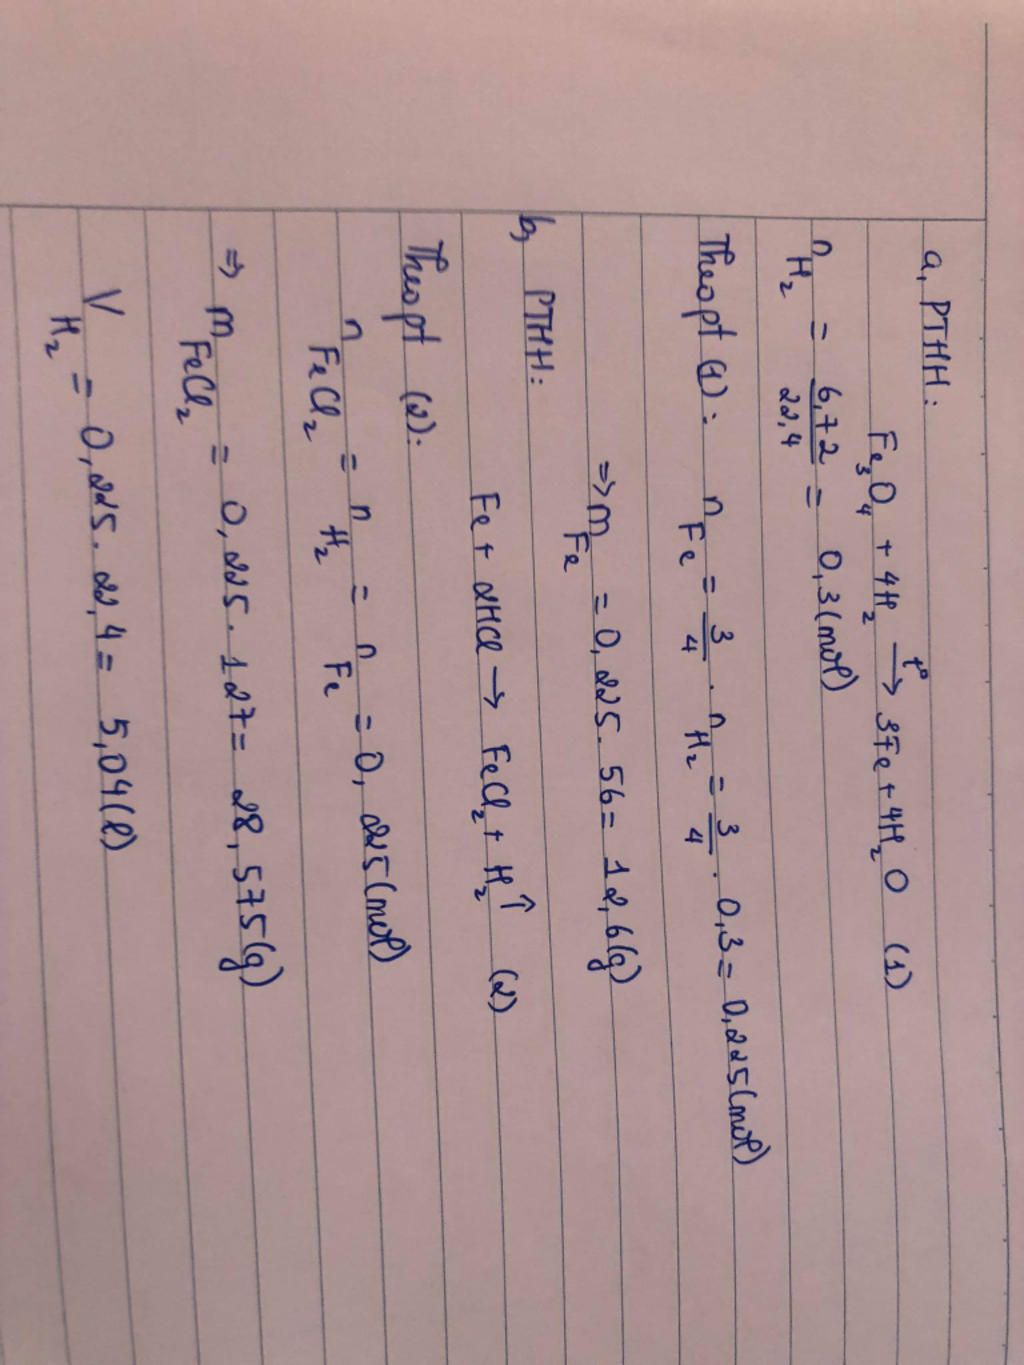 a, PTHH:
Fe₃O₄ + 4H₂ →(t°) 3Fe + 4H₂O (1)
n H₂ = 6,72/22,4 = 0,3(mol)
Theo pt (1): n Fe = 3/4 . n H₂ = 3/4 . 0,3 = 0,225(mol)
=> m Fe = 0,225. 56 = 12,6(g)
b, PTHH:
Fe + 2HCl → FeCl₂ + H₂↑ (2)
Theo pt (2):
n FeCl₂ = n H₂ = n Fe = 0,225(mol)
=> m FeCl₂ = 0,225. 127 = 28,575(g)
V H₂ = 0,225. 22,4 = 5,04(l)